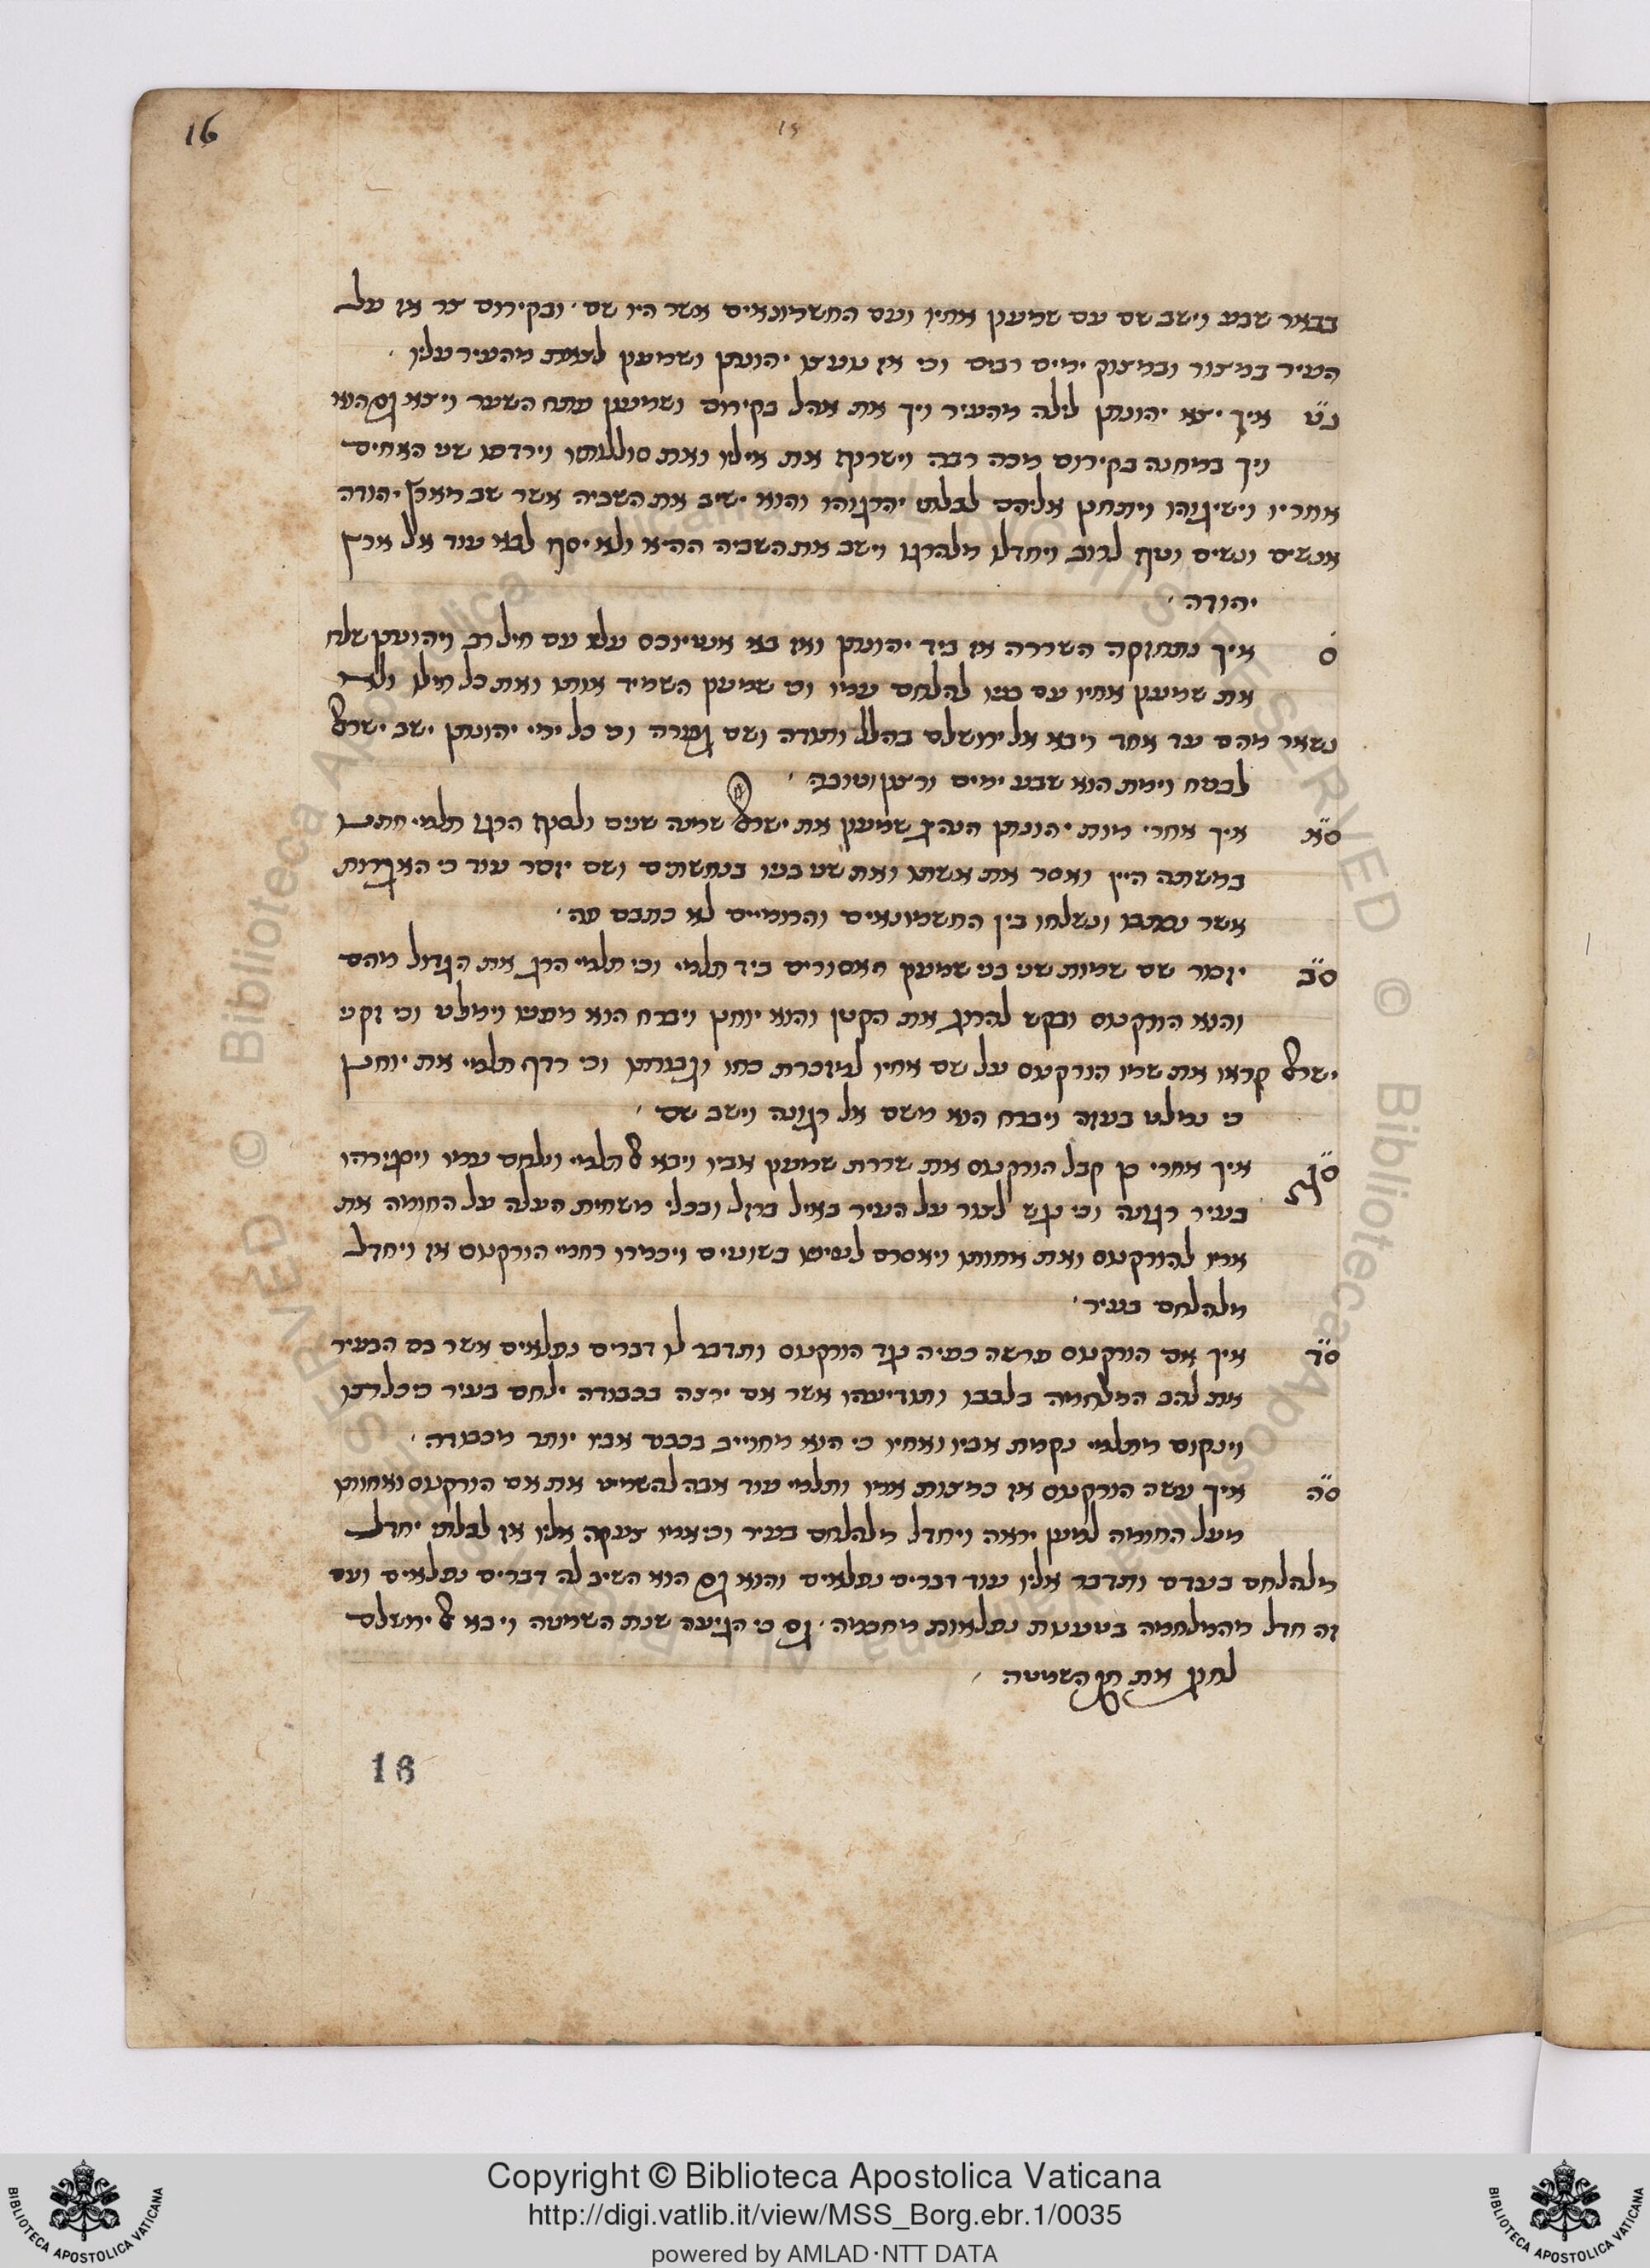 16
15
בבאר שבע וישב שם עם שמעון אחיו ועם החשמונאים אשר היו שם ׳ ובקירוס צר אז על
העיר במצור ובמצוק ימים רבים וכי אז נועצו יהונתן ושמעון לצאת מהעיר עליו ׳
נ״ט איך יצא יהונתן לילה מהעיר ויך את אהל בקירוס ושמעון פתח השער ויצא גם הוא
ויך במחנה בקירוס מכה רבה וישרוף את אילו ואת סוללותו וירדפו שני האחים
אחריו וישיגוהו ויתחנן אליהם לבלתי יהרגוהו והוא ישיב את השביה אשר שב מארץ יהודה
אנשים ונשים וטף לרוב ויחדלו מלהרגו וישב את השביה ההיא ולא יסף לבא עוד אל ארץ
יהודה ׳
ס איך נתחזקה השררה אז ביד יהונתן ואז בא אנטיוכס עליו עם חיל רב ויהונתן שלח
את שמעון אחיו עם בניו להלחם עמו וכי שמעון השמיד אותו ואת כל חילו ולא
נשאר מהם עד אחד ויבא אל ירושלם בהלל ותודה ושם גבורה וכי כל ימי יהונתן ישב ישראל
לבטח וימת הוא שבע ימים ורצון וטובה ׳
ס״א איך אחרי מות יהונתן הנהיג שמעון את ישראל שמנה שנים ולסוף הרגו תלמי חתנו
במשתה היין ואסר את אשתו ואת שני בניו בנחשתים ושם יוסר עוד כי האגרות
אשר נכתבו ונשלחו בין החשמונאים והרומיים לא כתבם פה ׳
ס״ב יזכור שם שמות שני בני שמעון האסורים ביד תלמי וכי תלמי הרג את הגדול מהם
והוא הורקנוס ובקש להרוג את הקטן והוא יוחנן ויברח הוא מפניו וימלט וכי זקני
ישראל קראו את שמו הורקנוס על שם אחיו למזכרת כחו וגבורתו וכי רדף תלמי את יוחנן
כי נמלט בעזה ויברח הוא משם אל דגונה וישב שם ׳
ס״ג איך אחרי כן קבל הורקנוס את שררת שמעון אביו ויבא אל תלמי וילחם עמו ויסגירהו
בעיר דגונה וכי נגש לצור על העיר באיל ברזל ובכלי משחית העלה על החומה את
אמו להורקנוס ואת אחותו ויאסרם לעיניו בשוטים ויכמרו רחמי הורקנוס אז ויחדל
מלהלחם בעיר ׳
ס״ד איך אם הורקנוס פרשה כפיה נגד הורקנוס ותדבר לו דברים נפלאים אשר בם הבעיר
את להב המלחמה בלבבו ותודיעהו אשר אם ירצה בכבודה ילחם בעיר כי כלכדו
וינקום מתלמי נקמת אביו ואחיו כי הוא מחוייב בכבוד אביו יותר מכבודה ׳
ס״ה איך עשה הורקנוס אז כמצות אמו ותלמי עוד אבה להשמיט את אם הורקנוס ואחותו
מעל החומה למען יראה ויחדל מלהלחם בעיר וכי אמו צעקה אליו אז לבלתי יחדל
מלהלחם בעדם ותדבר אליו עוד דברים נפלאים והוא גם הוא השיב לה דברים נפלאים ועם
זה חדל מהמלחמה בטענות נפלאות מחכמה ׳ גם כי הגיעה שנת השמטה ויבא אל ירושלם
לחוג את חג השמטה ׳
16
Copyright © Biblioteca Apostolica Vaticana
http://digi.vatlib.it/view/MSS_Borg.ebr.1/0035
powered by AMLAD·NTT DATA